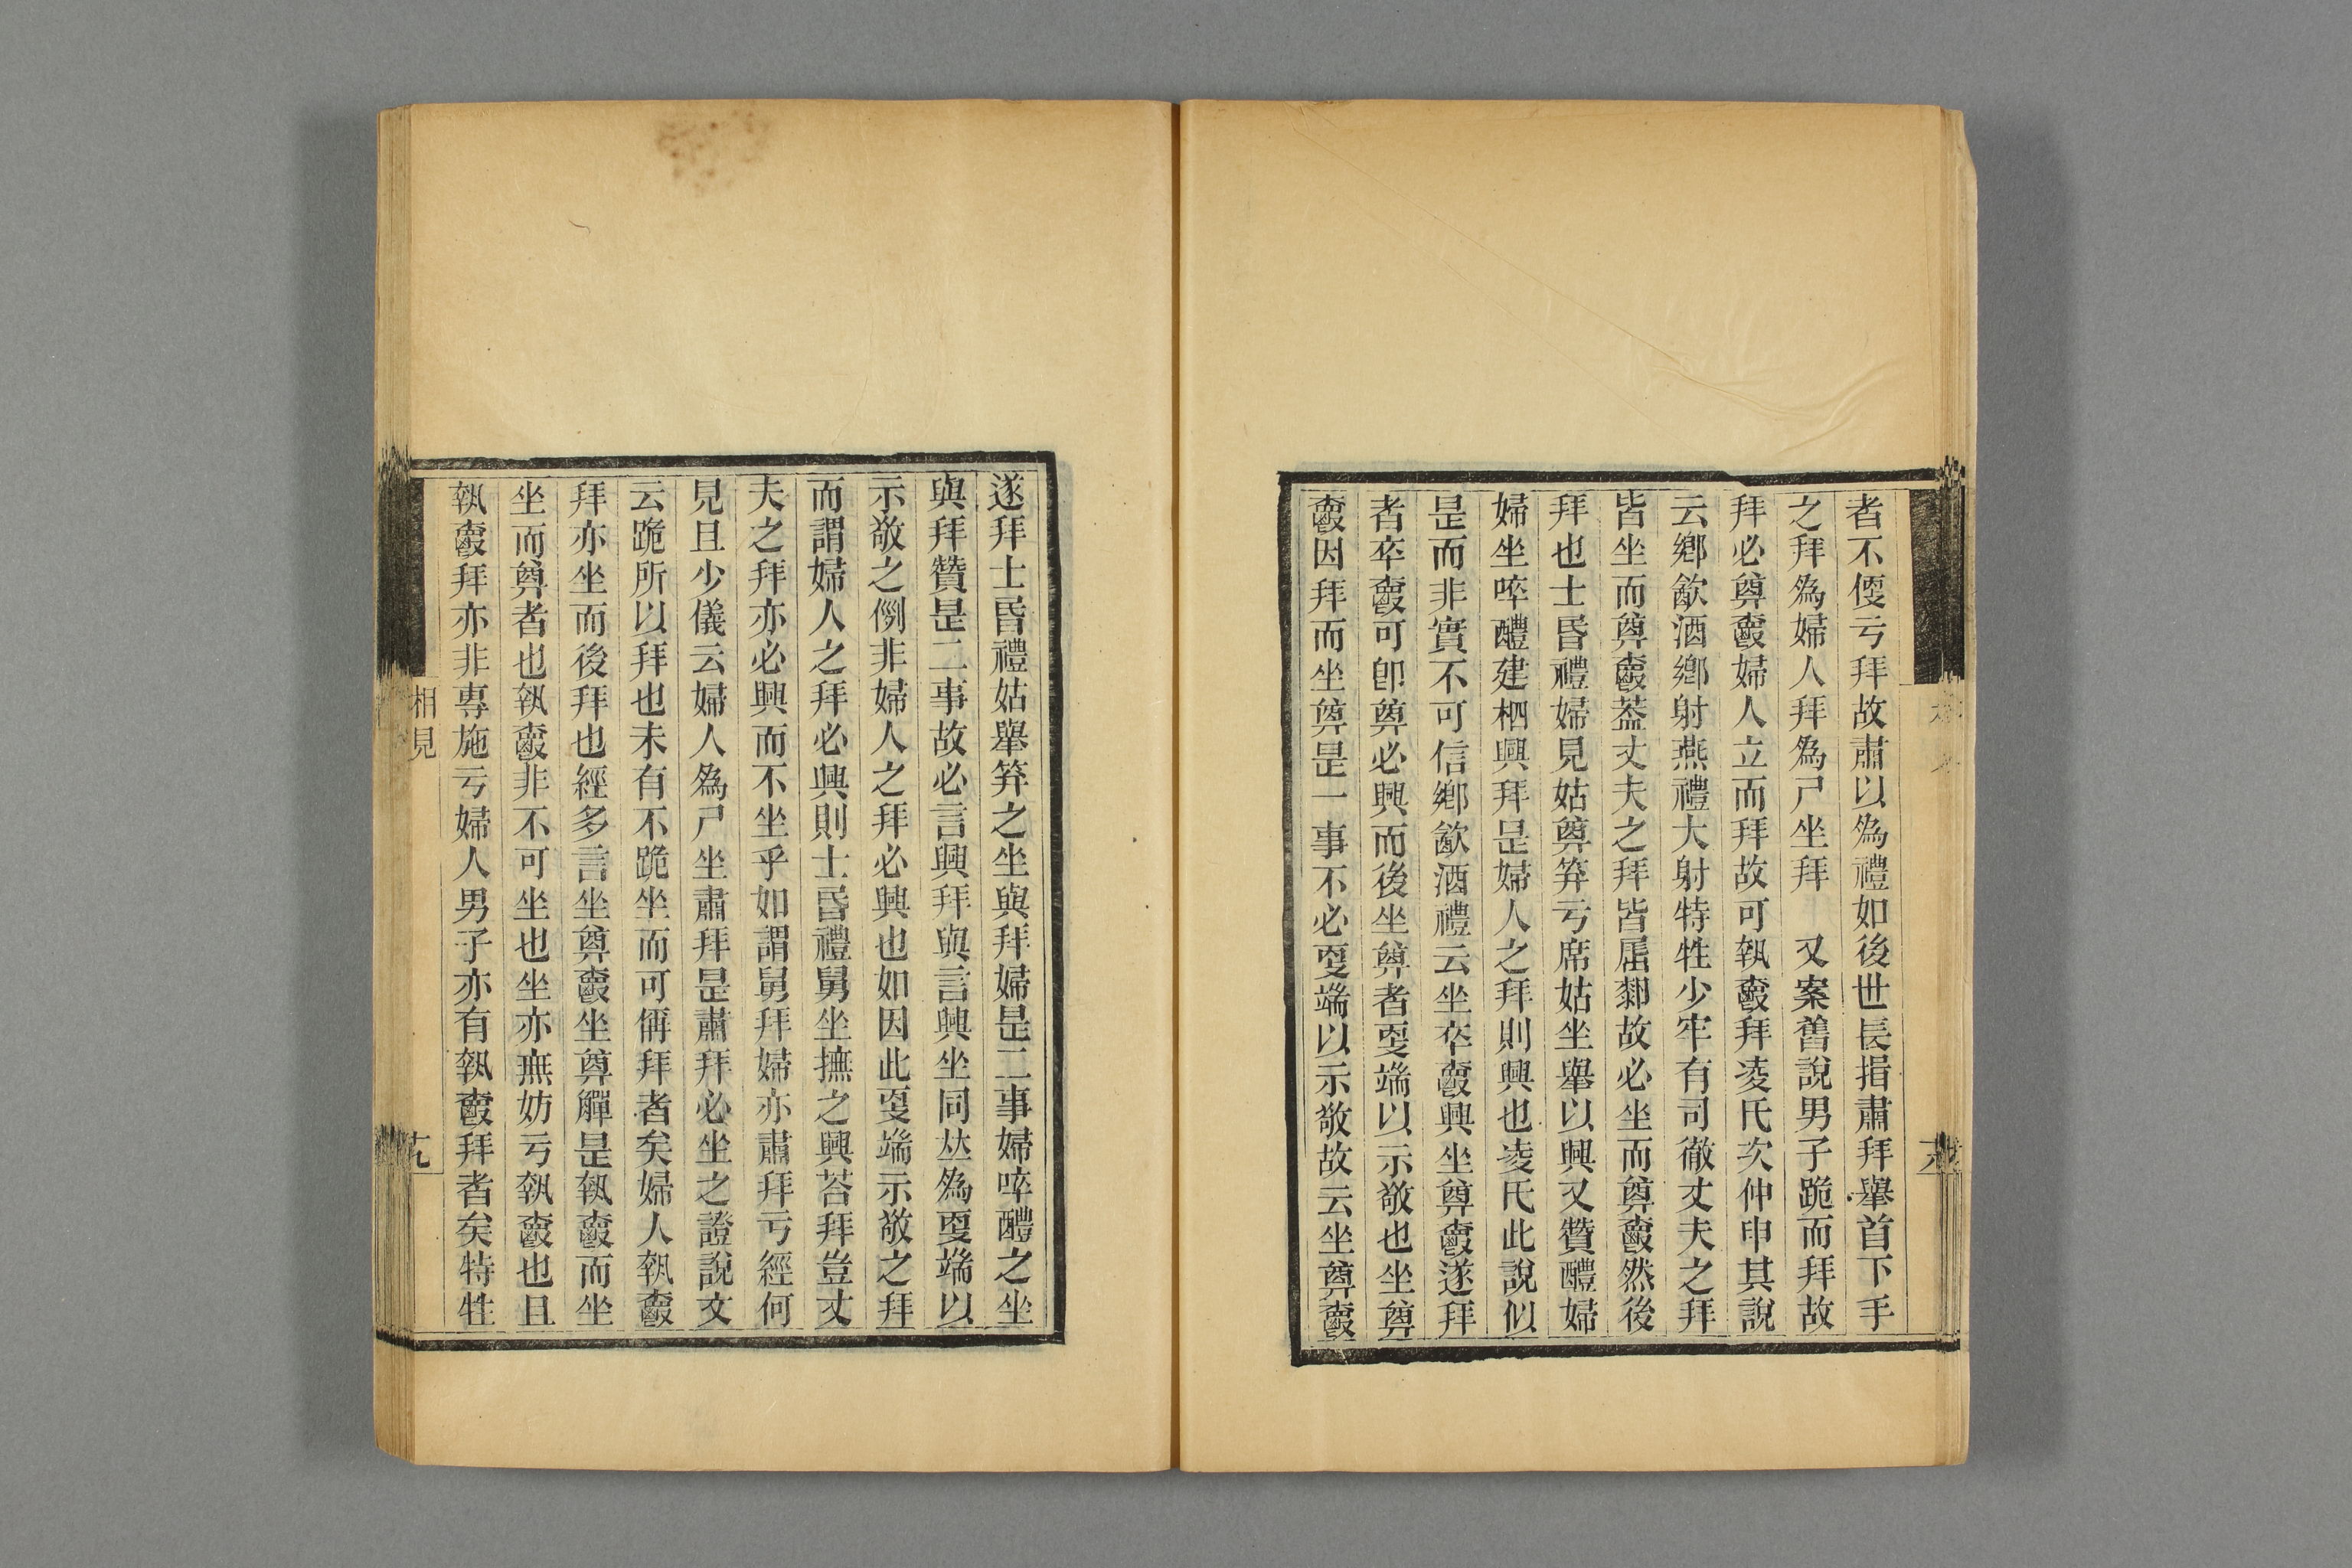 者不㥠亏拜故肅以為禮如後世長揖肅拜舉首下手
之拜為婦人拜為尸坐拜　又案舊說男子跪而拜故
拜必奠爵婦人立而拜故可執爵拜凌氏次仲申其說
云鄉飲酒鄉射燕禮大射特牲少牢有司徹丈夫之拜
皆坐而奠爵葢丈夫之拜皆屈厀故必坐而奠爵然後
拜也士昏禮婦見姑奠笲亏席姑坐舉以興又贊醴婦
婦坐啐醴建柶興拜昰婦人之拜則興也凌氏此說似
昰而非實不可信鄉飲酒禮云坐卒爵興坐奠爵遂拜
者卒爵可卽奠必興而後坐奠者㪅端以示敬也坐奠
爵因拜而坐奠昰一事不必㪅端以示敬故云坐奠爵
遂拜士昏禮姑舉笲之坐與拜婦昰二事婦啐醴之坐
與拜贊昰二事故必言興拜與言興坐同竝為㪅端以
示敬之例非婦人之拜必興也如因此㪅端示敬之拜
而謂婦人之拜必興則士昏禮舅坐撫之興荅拜豈丈
夫之拜亦必興而不坐乎如謂舅拜婦亦肅拜亏經何
見且少儀云婦人為尸坐肅拜昰肅拜必坐之證說文
云跪所以拜也未有不跪坐而可偁拜者矣婦人執爵
拜亦坐而後拜也經多言坐奠爵坐奠觶昰執爵而坐
坐而奠者也執爵非不可坐也坐亦無妨亏執爵也且
執爵拜亦非專施亏婦人男子亦有執爵拜者矣特牲
相見
十九